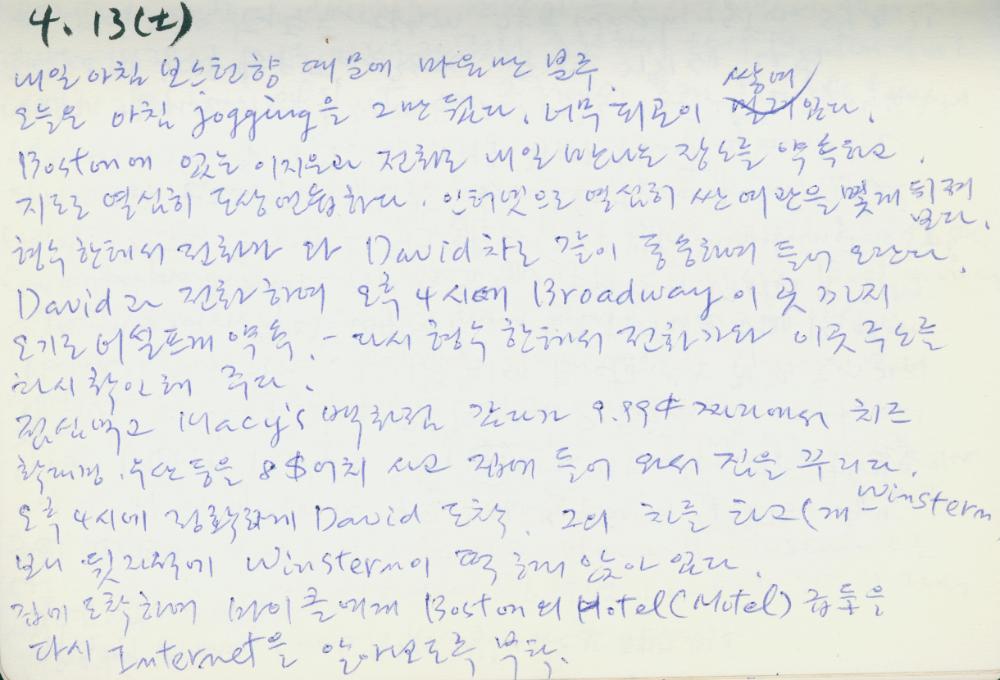 4. 13(土)
내일 아침 보스턴 향 때문에 마음만 분주.
오늘은 아침 jogging을 그만 뒀다. 너무 피곤이 쌓여 있다.
Boston에 있는 이지은과 전화로 내일 만나는 장소를 약속하고.
지도로 열심히 도상연습하다. 인터넷으로 열심히 싼 여관을 몇개 뒤져
보다.
형수한테서 전화가 와 David 차로 같이 동승하여 들어 오란다.
David과 전화하여 오후 4시에 Broadway 이곳까지
오기로 어설프게 약속. - 다시 형수한테서 전화가 와 이곳 주소를
다시 확인해 주다.
점심먹고 Macy's 백화점 갔다가 9.99¢ 짜리에서 치즈
확대경, 우산 등을 8$어치 사고 집에 들어 와서 짐을 꾸리다.
오후 4시에 정확하게 David 도착. 그의 차를 타고(개-Winstern
보니 뒷자석에 Winstern이 떡 하니 앉아 있다.
집에 도착하여 마이클에게 Boston의 Hotel(Motel) 급들을
다시 Internet을 알아보도록 부탁.